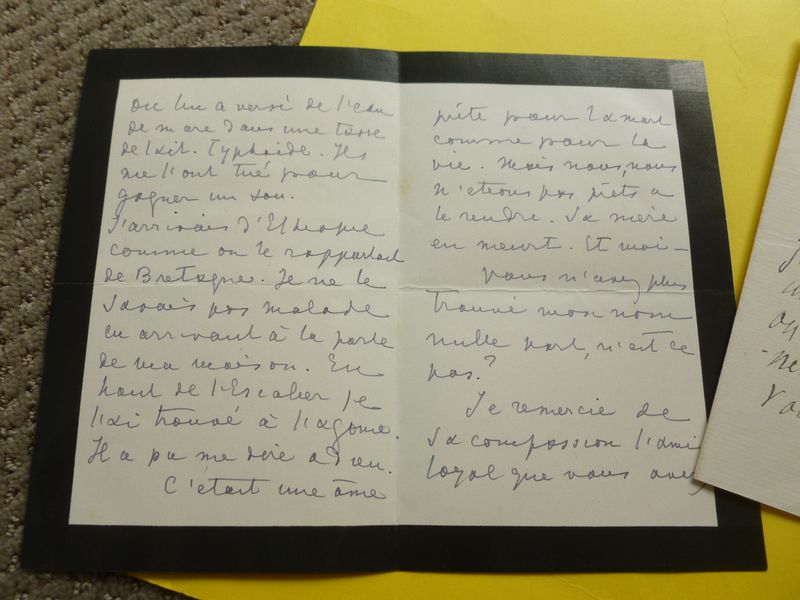 on lui a versé de l'eau
de mare dans une tasse
de lait. Typhoïde. Ils
me l'ont tué pour
gagner un sou.
J'arrivais d'Ethiopie
comme on le rapportait
de Bretagne. Je ne le
savais pas malade
en arrivant à la porte
de ma maison. En
haut de l'Escalier je
l'ai trouvé à l'agonie.
Il a pu me dire adieu.
C'était une âme
prête pour la mort
comme pour la
vie. Mais nous, nous
n'étions pas prêts a
le rendre. Sa mère
en meurt. Et moi -
vous n'avez plus
trouvé mon nom
nulle part, n'est ce
pas?
Je remercie de
sa compassion l'ami
loyal que vous avez